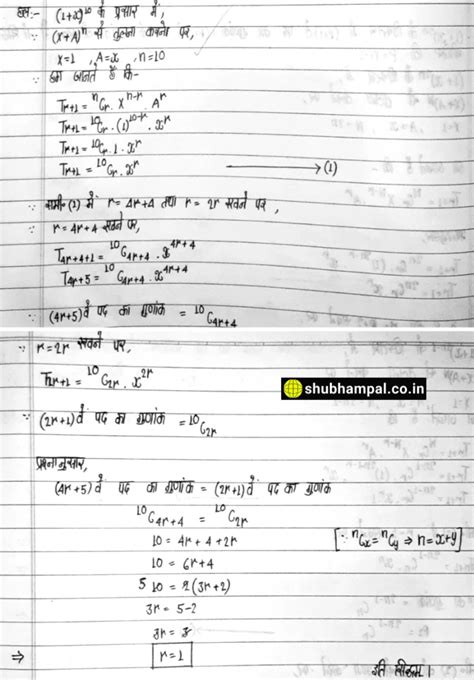 हल:- (1+x)¹⁰ के प्रसार में,
∵ (x+A)ⁿ से तुलना करने पर,
x=1 , A=x , n=10
∵ हम जानते हैं कि-
Tr+1 = ⁿCr . xⁿ⁻ʳ . Aʳ
Tr+1 = ¹⁰Cr . (1)¹⁰⁻ʳ . xʳ
Tr+1 = ¹⁰Cr . 1 . xʳ
Tr+1 = ¹⁰Cr . xʳ → (1)
∵ समी० (1) में r = 4r+4 तथा r = 2r रखने पर ,
∵ r = 4r+4 रखने पर,
T4r+4+1 = ¹⁰C4r+4 . x⁴ʳ⁺⁴
T4r+5 = ¹⁰C4r+4 . x⁴ʳ⁺⁴
∵ (4r+5) वें पद का गुणांक = ¹⁰C4r+4
∵ r=2r रखने पर,
T2r+1 = ¹⁰C2r . x²ʳ
shubhampal.co.in
∵ (2r+1) वें पद का गुणांक = ¹⁰C2r
प्रश्नानुसार,
(4r+5) वें पद का गुणांक = (2r+1) वें पद का गुणांक
¹⁰C4r+4 = ¹⁰C2r
10 = 4r+4+2r [∵ ⁿCx = ⁿCy ⇒ n=x+y]
10 = 6r+4
5 10 = 2(3r+2)
3r = 5-2
3r = 3
⇒ r=1
इति सिद्धम